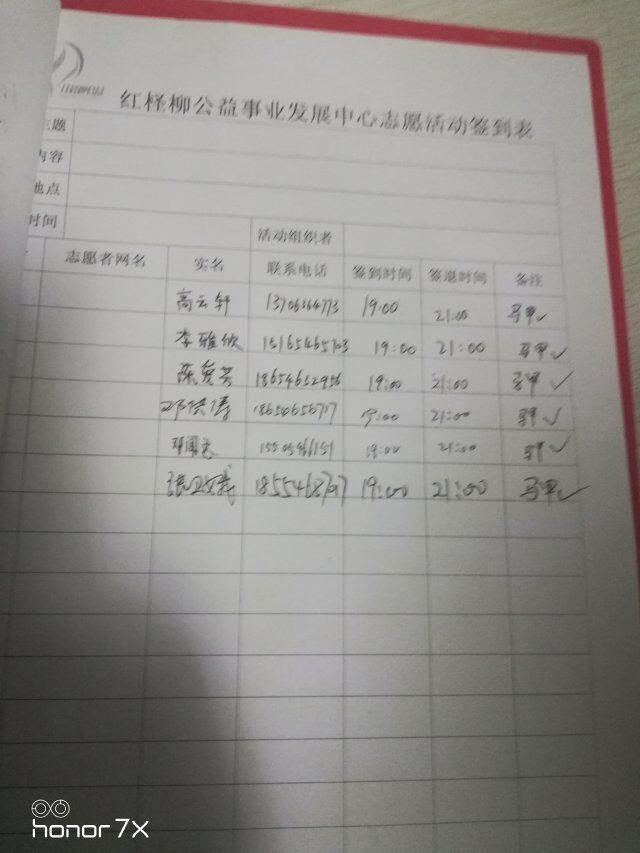 红柽柳公益事业发展中心志愿活动签到表
主题
内容
地点
时间 活动组织者
志愿者网名 实名 联系电话 签到时间 签退时间 备注
高云轩 19:00 21:00 马甲✓
李雅欣 15165465703 19:00 21:00 马甲✓
18654632956 19:00 21:00 马甲✓
邓 19:00 21:00 马甲✓
邓 19:00 21:00 马甲✓
张 19:00 21:00 马甲✓
honor 7X